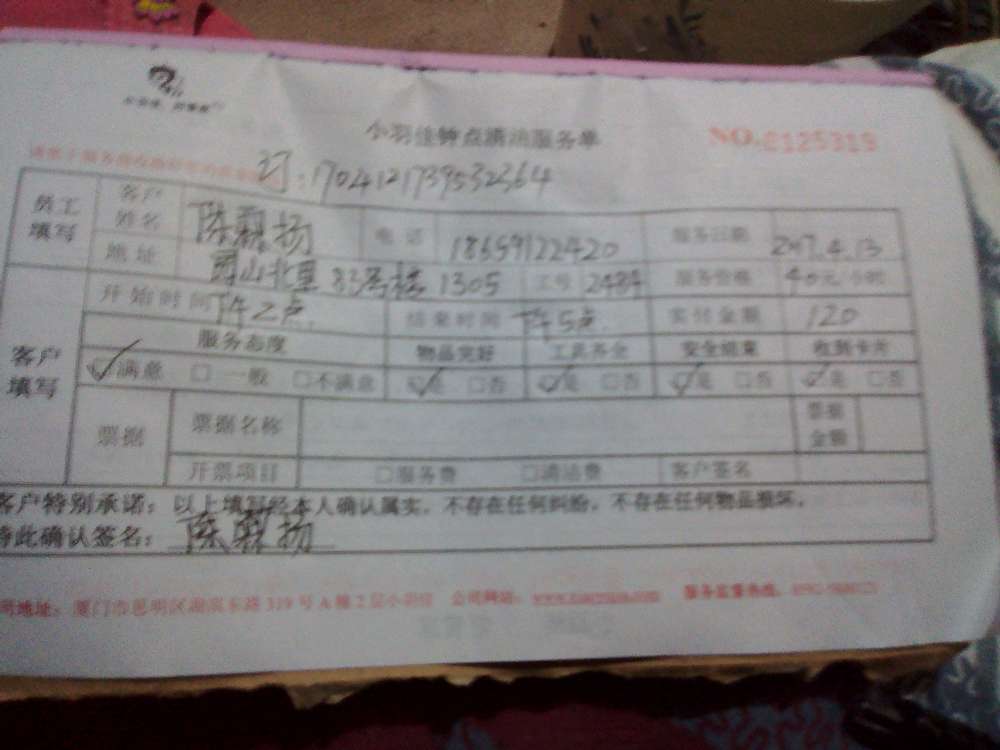 小羽佳钟点清洁服务单 NO.0125319
订:1704121739532364
员工填写 客户姓名 陈霖扬 电话 18659122420 服务日期 2017.4.13
地址 山北里 83号楼 1305 工号 2484 服务价格 40元/小时
开始时间 下午2点. 结束时间 下午5点. 实付金额 120
客户填写 服务态度 物品完好 工具齐全 安全结束 收到卡片
☑满意 □一般 □不满意 ☑是 □否 ☑是 □否 ☑是 □否 ☑是 □否
票据 票据名称 票据金额
开票项目 □服务费 □清洁费 客户签名
客户特别承诺：以上填写经本人确认属实，不存在任何纠纷，不存在任何物品损坏。
特此确认签名： 陈霖扬
司地址：厦门市思明区湖滨东路 319 号 A 幢 2 层小羽佳 公司网站： 服务监督热线：